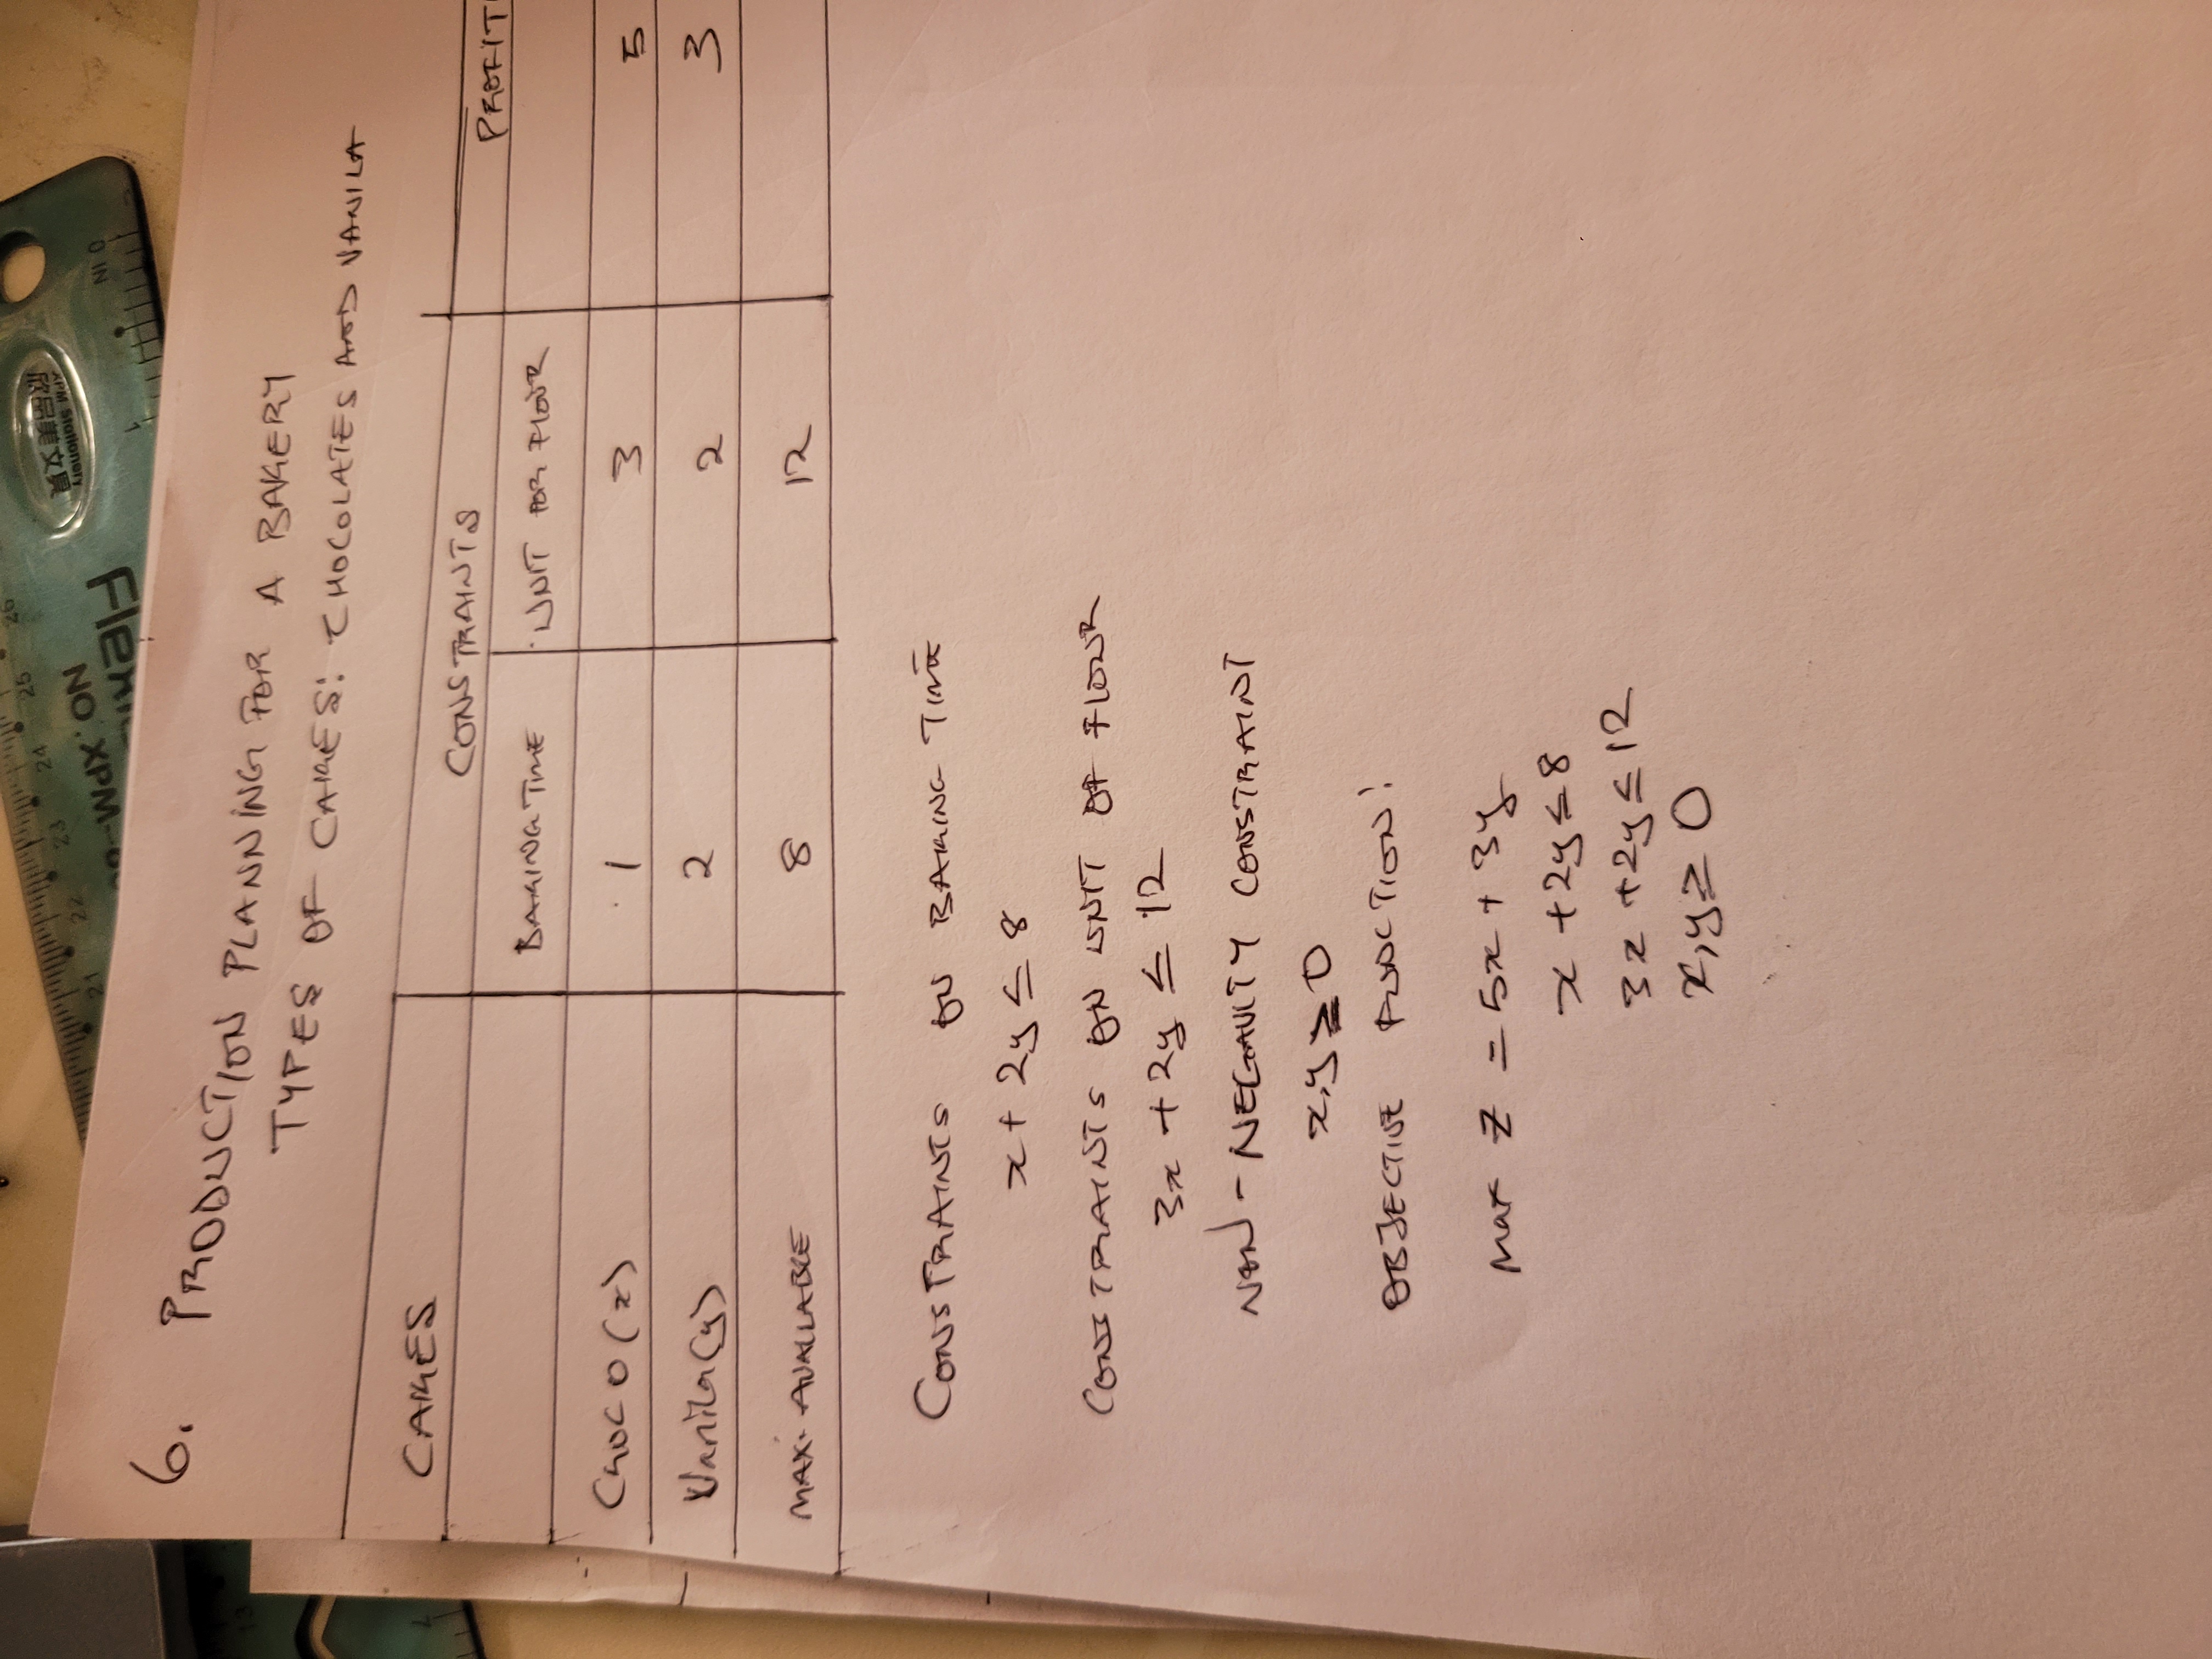 21 22 23 24 25 26
NO. XPM-
欣品美文具
XPM Stationery
0 IN
1
6. PRODUCTION PLANNING FOR A BAKERY
TYPES OF CAKES: CHOCOLATES AND VANILA
CAKES CONSTRAINTS PROFIT
BAKING TIME UNIT FOR FLOUR
CHOCO (x) 1 3 5
Vanila (y) 2 2 3
MAX. AVAILABLE 8 12
CONSTRAINTS ON BAKING TIME
x + 2y ≤ 8
CONSTRAINTS ON UNIT OF FLOUR
3x + 2y ≤ 12
NON-NEGAVITY CONSTRAINT
x,y ≥ 0
OBJECTIVE FUNCTION:
Max Z = 5x + 3y
x + 2y ≤ 8
3x + 2y ≤ 12
x,y ≥ 0